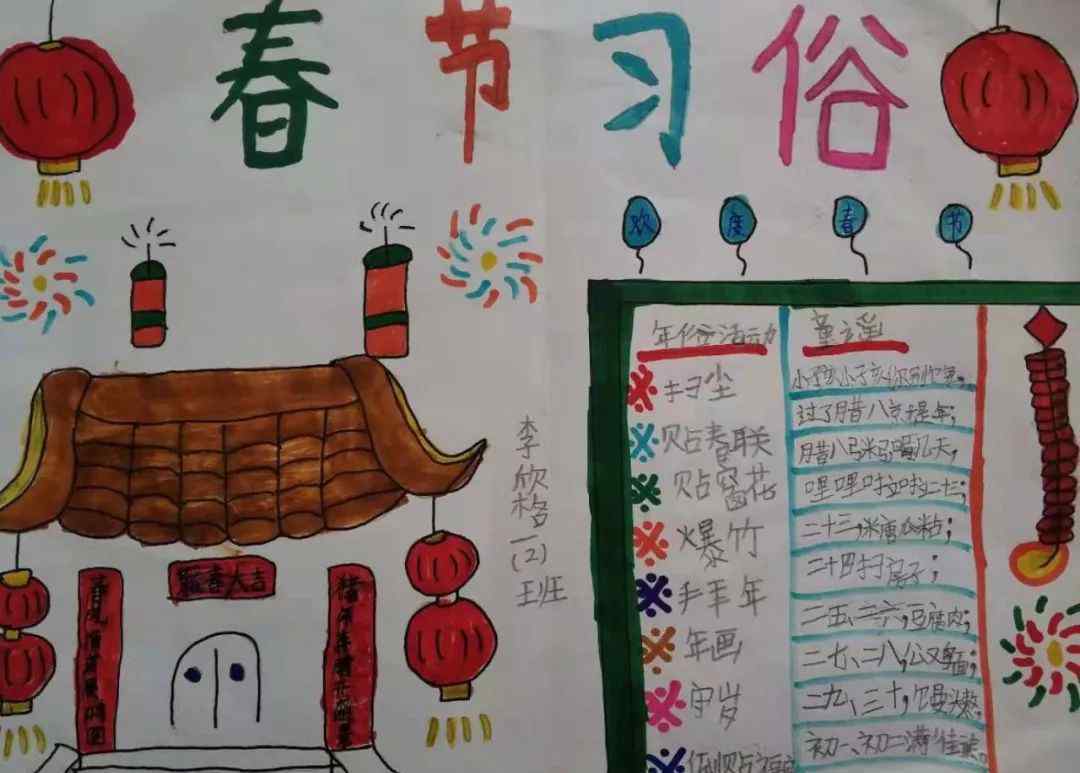 春节习俗
欢度春节
年俗活动
扫尘
贴春联
贴窗花
爆竹
拜年
年画
守岁
倒贴福
童谣
小孩小孩你别
过了腊八就是年;
腊八粥喝几天,
哩哩啦啦二十三;
二十三,糖瓜粘;
二十四扫房子;
二五、二六,豆腐肉;
二七、二八,公又
二九、三十,
初一、初二满街
李欣格一(2)班
春大吉